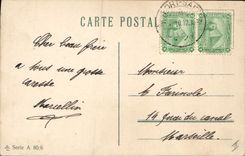 CARTE POSTALE
PORT-SAID
Cher beau frère
à tous une grosse
caresse
Marcellin
Monsieur
Farinole
19 quai du canal
Marseille
Serie A 80/6